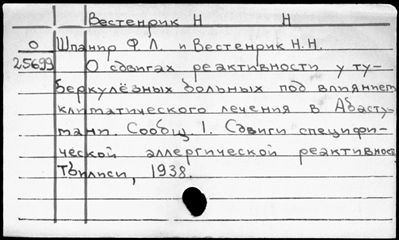 Вестенрик Н Н
О Шпанир Ф.Л. и Вестенрик Н.Н.
25699 О сдвигах реактивности у ту-
беркулёзных больных под влиянием
климатического лечения в Абасту-
мани. Сообщ 1. Сдвиги специфи-
ческой аллергической реактивнос
Тбилиси, 1938.